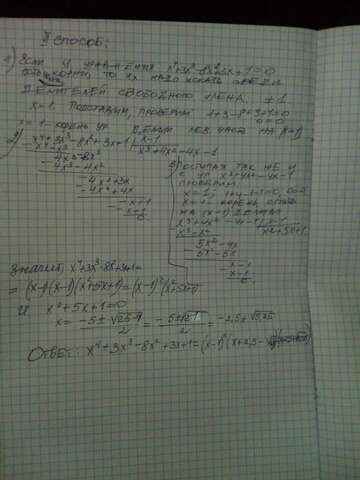 II способ:
1) Если у уравнения x⁴+3x³-8x²+3x+1=0
есть корни, то их надо искать среди
делителей свободного члена. ±1
x=1. Подставим, проверим 1+3-8+3+1=0
0=0
x=1 - корень ур делим лев часть на (x-1)
2) x⁴+3x³-8x²+3x+1 | x-1
x⁴-x³ | x³+4x²-4x-1
4x³-8x²
4x³-4x²
-4x²+3x
-4x²+4x
-x+1
-x+1
Поступая так же и
с ур x³+4x²-4x-1
проверим,
x=1; 1+4-4-1=0, 0=0
x=1 корень
на (x-1) делим
x³+4x²-4x-1 | x-1
x³-x² | x²+5x+1
5x²-4x
5x²-5x
x-1
x-1
0
Значит, x⁴+3x³-8x²+3x+1=
=(x-1)(x-1)(x²+5x+1)=(x-1)²(x²+5x+1)
и x²+5x+1=0
x= -5±√25-4 / 2 = -5±√21 / 2 = -2,5±√5,25
Ответ: x⁴+3x³-8x²+3x+1=(x-1)²(x+2,5-√